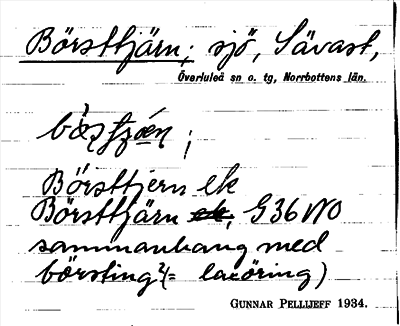 Börsttjärn; sjö, Sävast,
Överluleå sn o. tg, Norrbottens län.
Börsttjern ek
Börsttjärn ek, G36 NO
sammanhang med
börsting (= laxöring)
GUNNAR PELLIJEFF 1934.